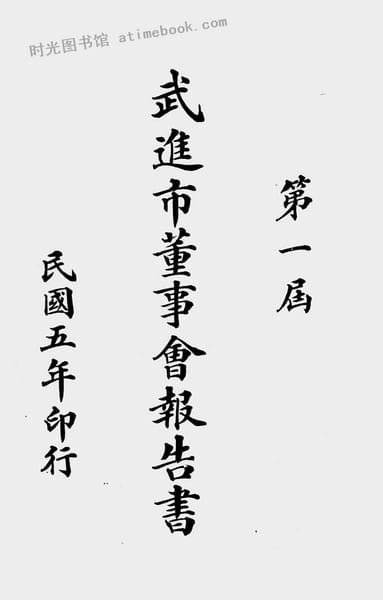 时光图书馆 atimebook.com
第一屆
武進市董事會報告書
民國五年印行